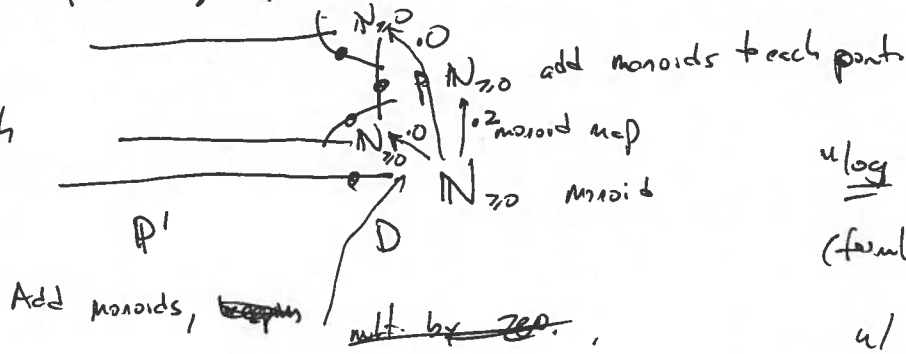 ℕ≥0
·0
ℕ≥0 add monoids to each points
ℕ≥0 ·0 ·2 monoid map
ℕ≥0 monoid
"log
ℙ¹ D
Add monoids, mult. by zero.,